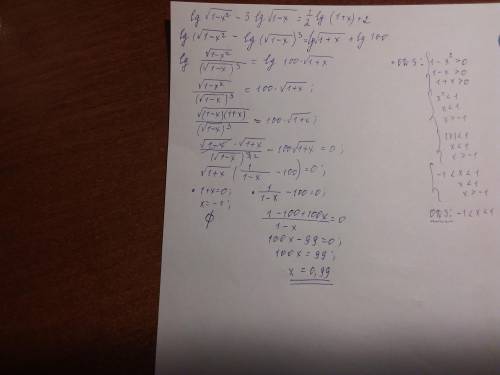 lg √1-x² - 3 lg √1-x = 1/2 lg (1+x) + 2
lg (√1-x² - lg (√1-x)³ = lg √1+x + lg 100
lg √1-x² / (√1-x)³ = lg 100·√1+x
√1-x² / (√1-x)³ = 100·√1+x ;
√(1-x)(1+x) / (√1-x)³ = 100·√1+x ;
√1-x · √1+x / (√1-x)³ ² - 100√1+x = 0 ;
√1+x ( 1/1-x - 100 ) = 0 ;
• 1+x=0 ; • 1/1-x - 100 = 0 ;
x = -1 ;
∅
1-100+100x / 1-x = 0
100x - 99 = 0 ;
100x = 99 ;
x = 0,99
• ОДЗ:
1-x² > 0
1-x > 0
1+x > 0
x² < 1
x < 1
x > -1
|x| < 1
x < 1
x > -1
-1 < x < 1
x < 1
x > -1
ОДЗ: -1 < x < 1